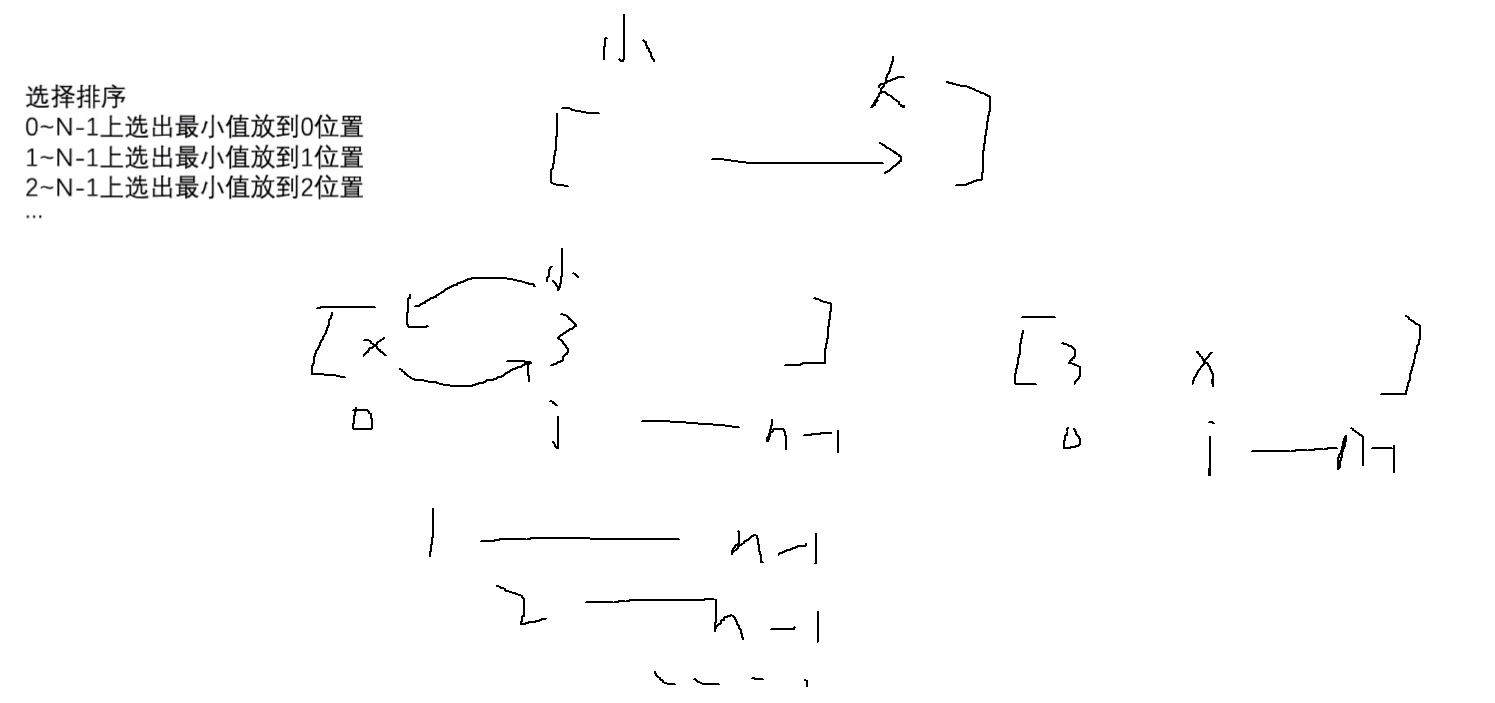 选择排序
0~N-1上选出最小值放到0位置
1~N-1上选出最小值放到1位置
2~N-1上选出最小值放到2位置
...
小 大
[ → ]
小
[ x 3 ]
0 i — n-1
[ 3 x ]
0 i — n-1
1 — n-1
2 — n-1